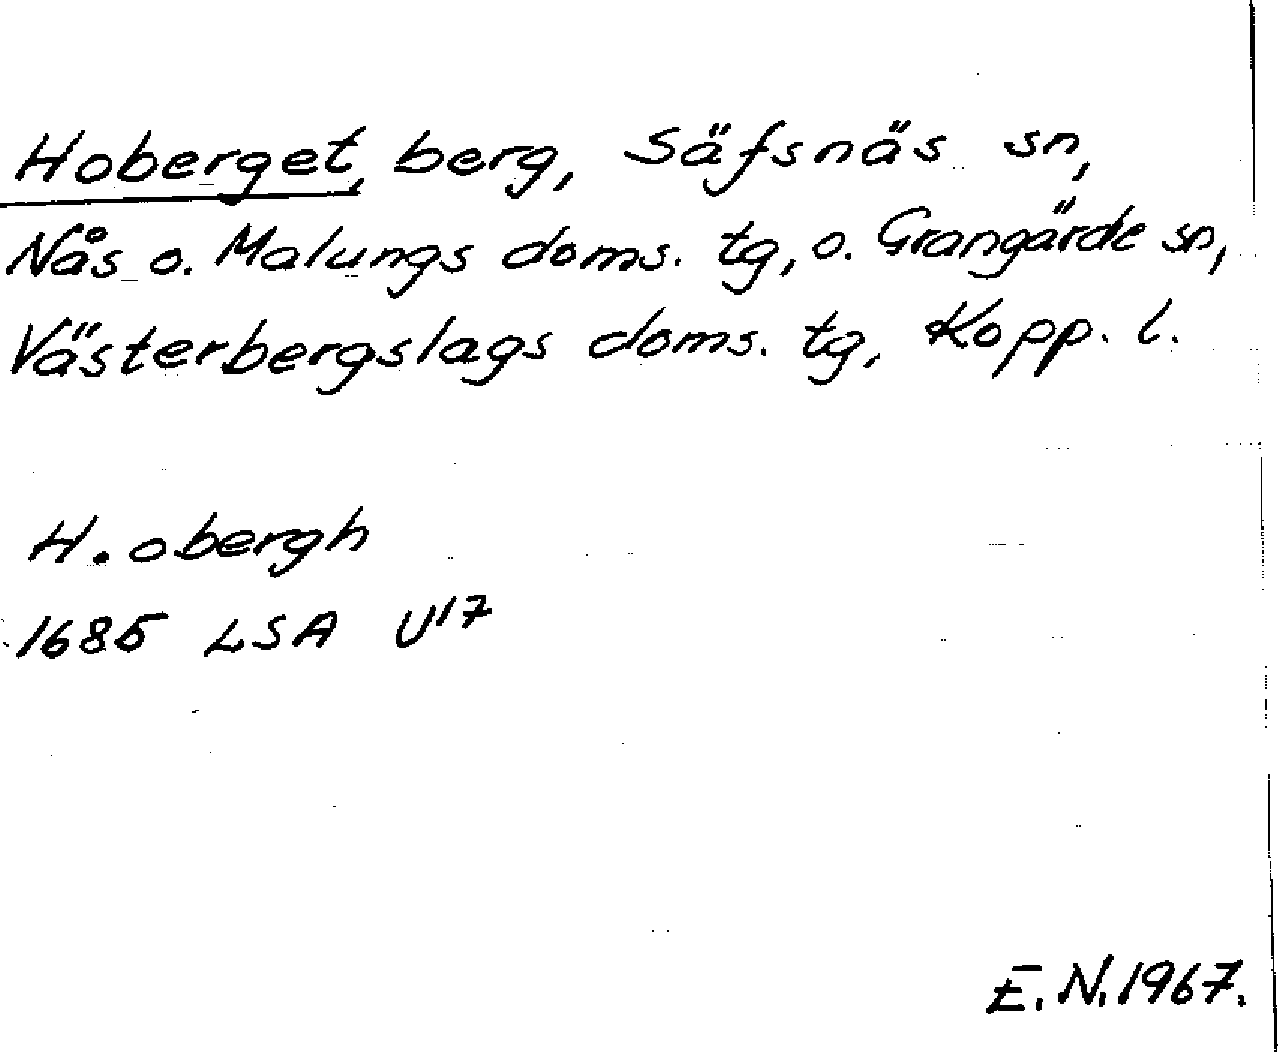 Hoberget, berg, Säfsnäs sn,
Nås o. Malungs doms. tg, o. Grangärde sn,
Västerbergslags doms. tg, Kopp. l.
H. obergh
1685 LSA U17
E. N. 1967.